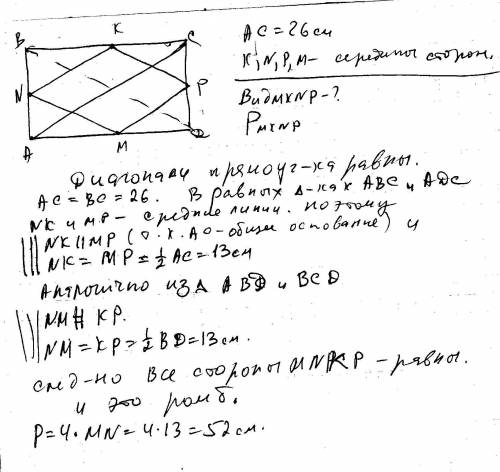 B K C
N P
A M D
AC = 26 см
K, N, P, M – середины сторон.
Вид MKNP – ?
P MKNP
Диагонали прямоуг-ка равны.
AC = BC = 26. В равных Δ-ках ABC и ADC
NK и MP – средние линии. поэтому
NK || MP (т.к. AC – общее основание) и
NK = MP = ½ AC = 13 см
Аналогично из Δ ABD и BCD
NM || KP.
NM = KP = ½ BD = 13 см.
след-но все стороны MNKP – равны.
и это ромб.
P = 4 · MN = 4 · 13 = 52 см.